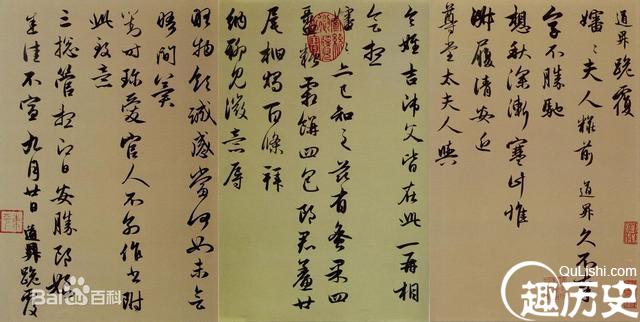 道昇跪覆
嬸〻夫人粧前 道昇久不奉
字不勝馳
想秋深漸寒計惟
淑履清安近
尊堂太夫人與
令姪吉師父皆在此一再相
會想
嬸〻亦已知之茲有蜜果四
盝糖霜餅四包郎君鯗廿
尾柏燭百條拜
納聊見微意辱
物領誠感當何如未會
晤間冀
對時珍愛官人不別作書附
此致意
三總管想即日安勝郎娘
悉佳不宣九月廿日 道昇跪覆
Bai百科
QuLishi.com
趣历史